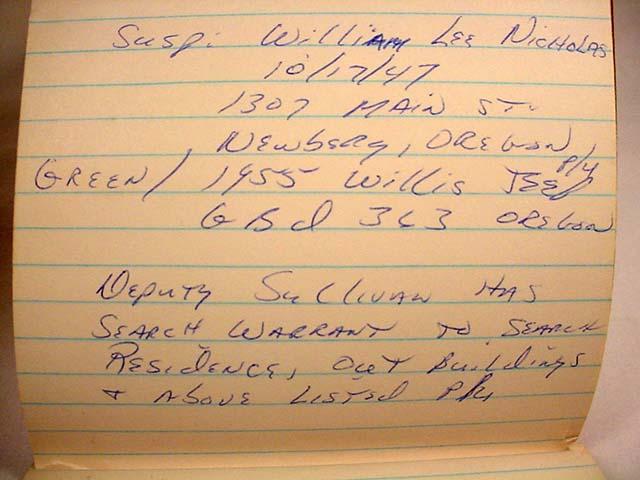 Susp: William Lee Nicholas
10/17/47
1307 Main St.
Newberg, Oregon
Green/ 1955 Willis Jeep P/U
GBd 363 Oregon
Deputy Sullivan has
search warrant to search
Residence, out buildings
+ above listed P/U